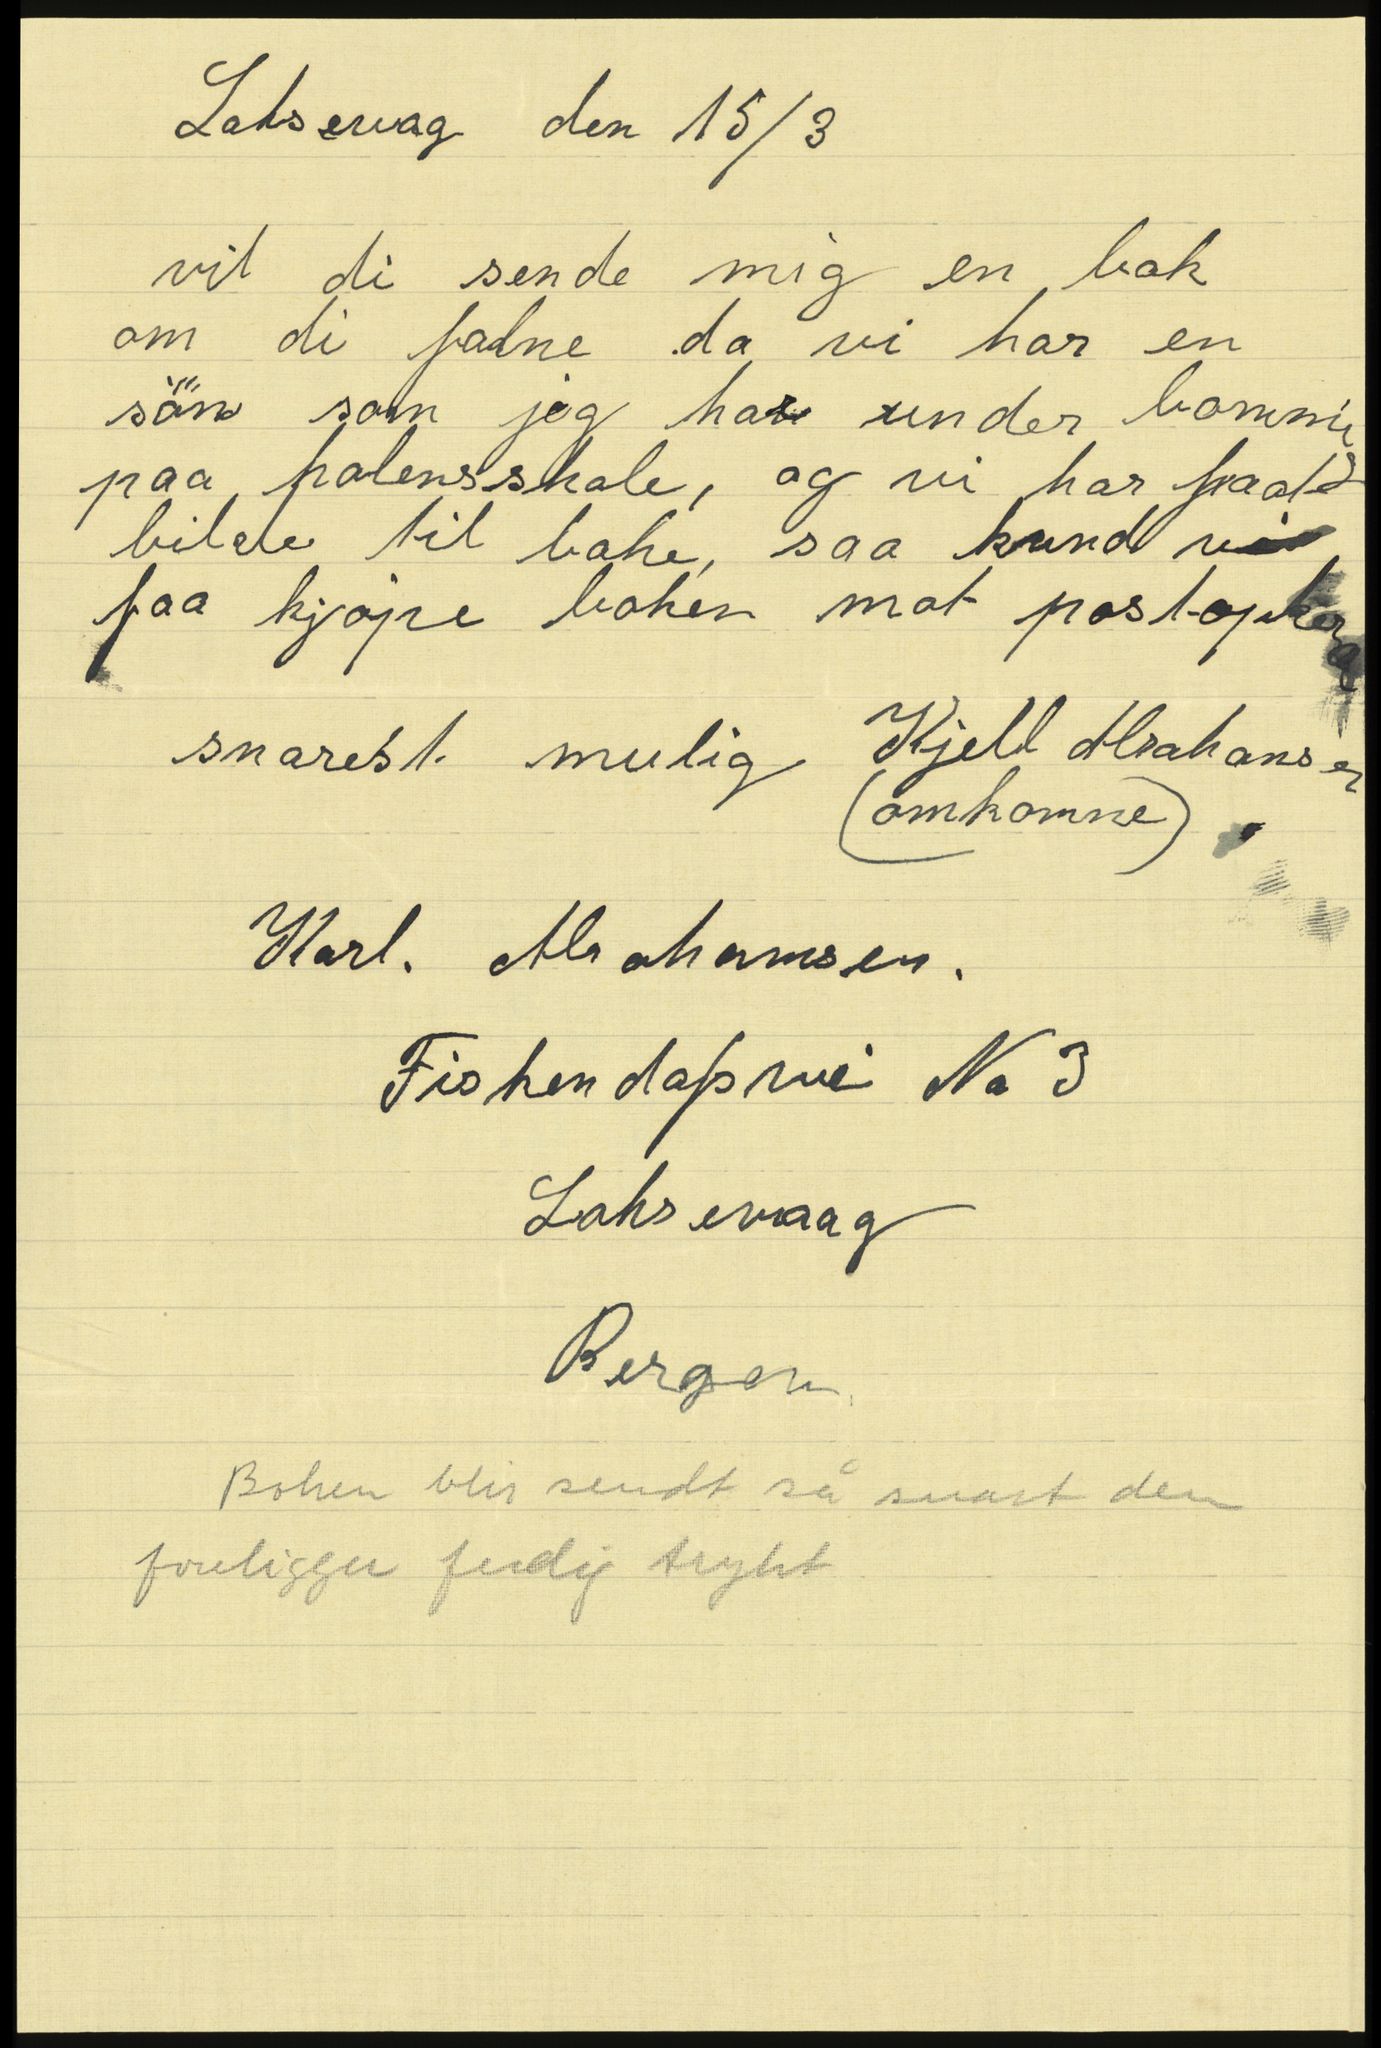 Laksevag den 15/3
vil di sende mig en bok
om di falne da vi har en
sön som jeg har under bommi
paa holensskole, og vi har faat
bilde til bake, saa kund vi
faa kjøpe boken mot postopkrer
snarest mulig Kjell Abrahamsen
(omkomne)
Karl. Abrahamsen.
Fiskendapsvei No 3
Laksevaag
Bergen
Boken blir sendt så snart den
foreligger ferdig trykt